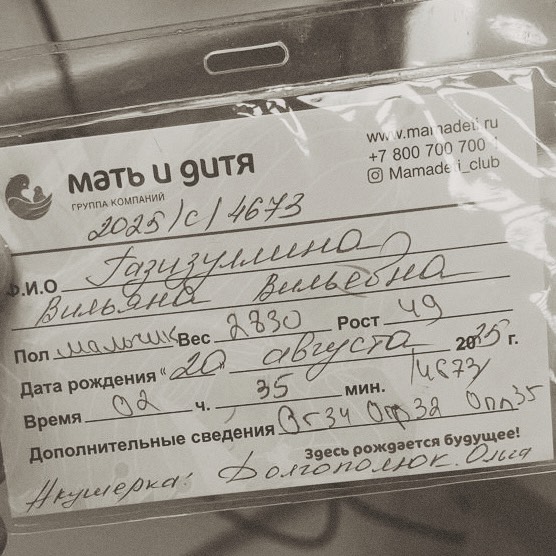 www.mamadeti.ru
+7 800 700 700
Mamadeti_club
мать и дитя
ГРУППА КОМПАНИЙ
2025/с/4673
Ф.И.О Газизуллина
Вильяна Вильевна
Пол мальчик Вес 2830 Рост 49
Дата рождения "20" августа 2025 г.
Время 02 ч. 35 мин. /4673/
Дополнительные сведения Ог34 Огр32 Опл35
Здесь рождается будущее!
Акушерка: Долгополюк Ольга